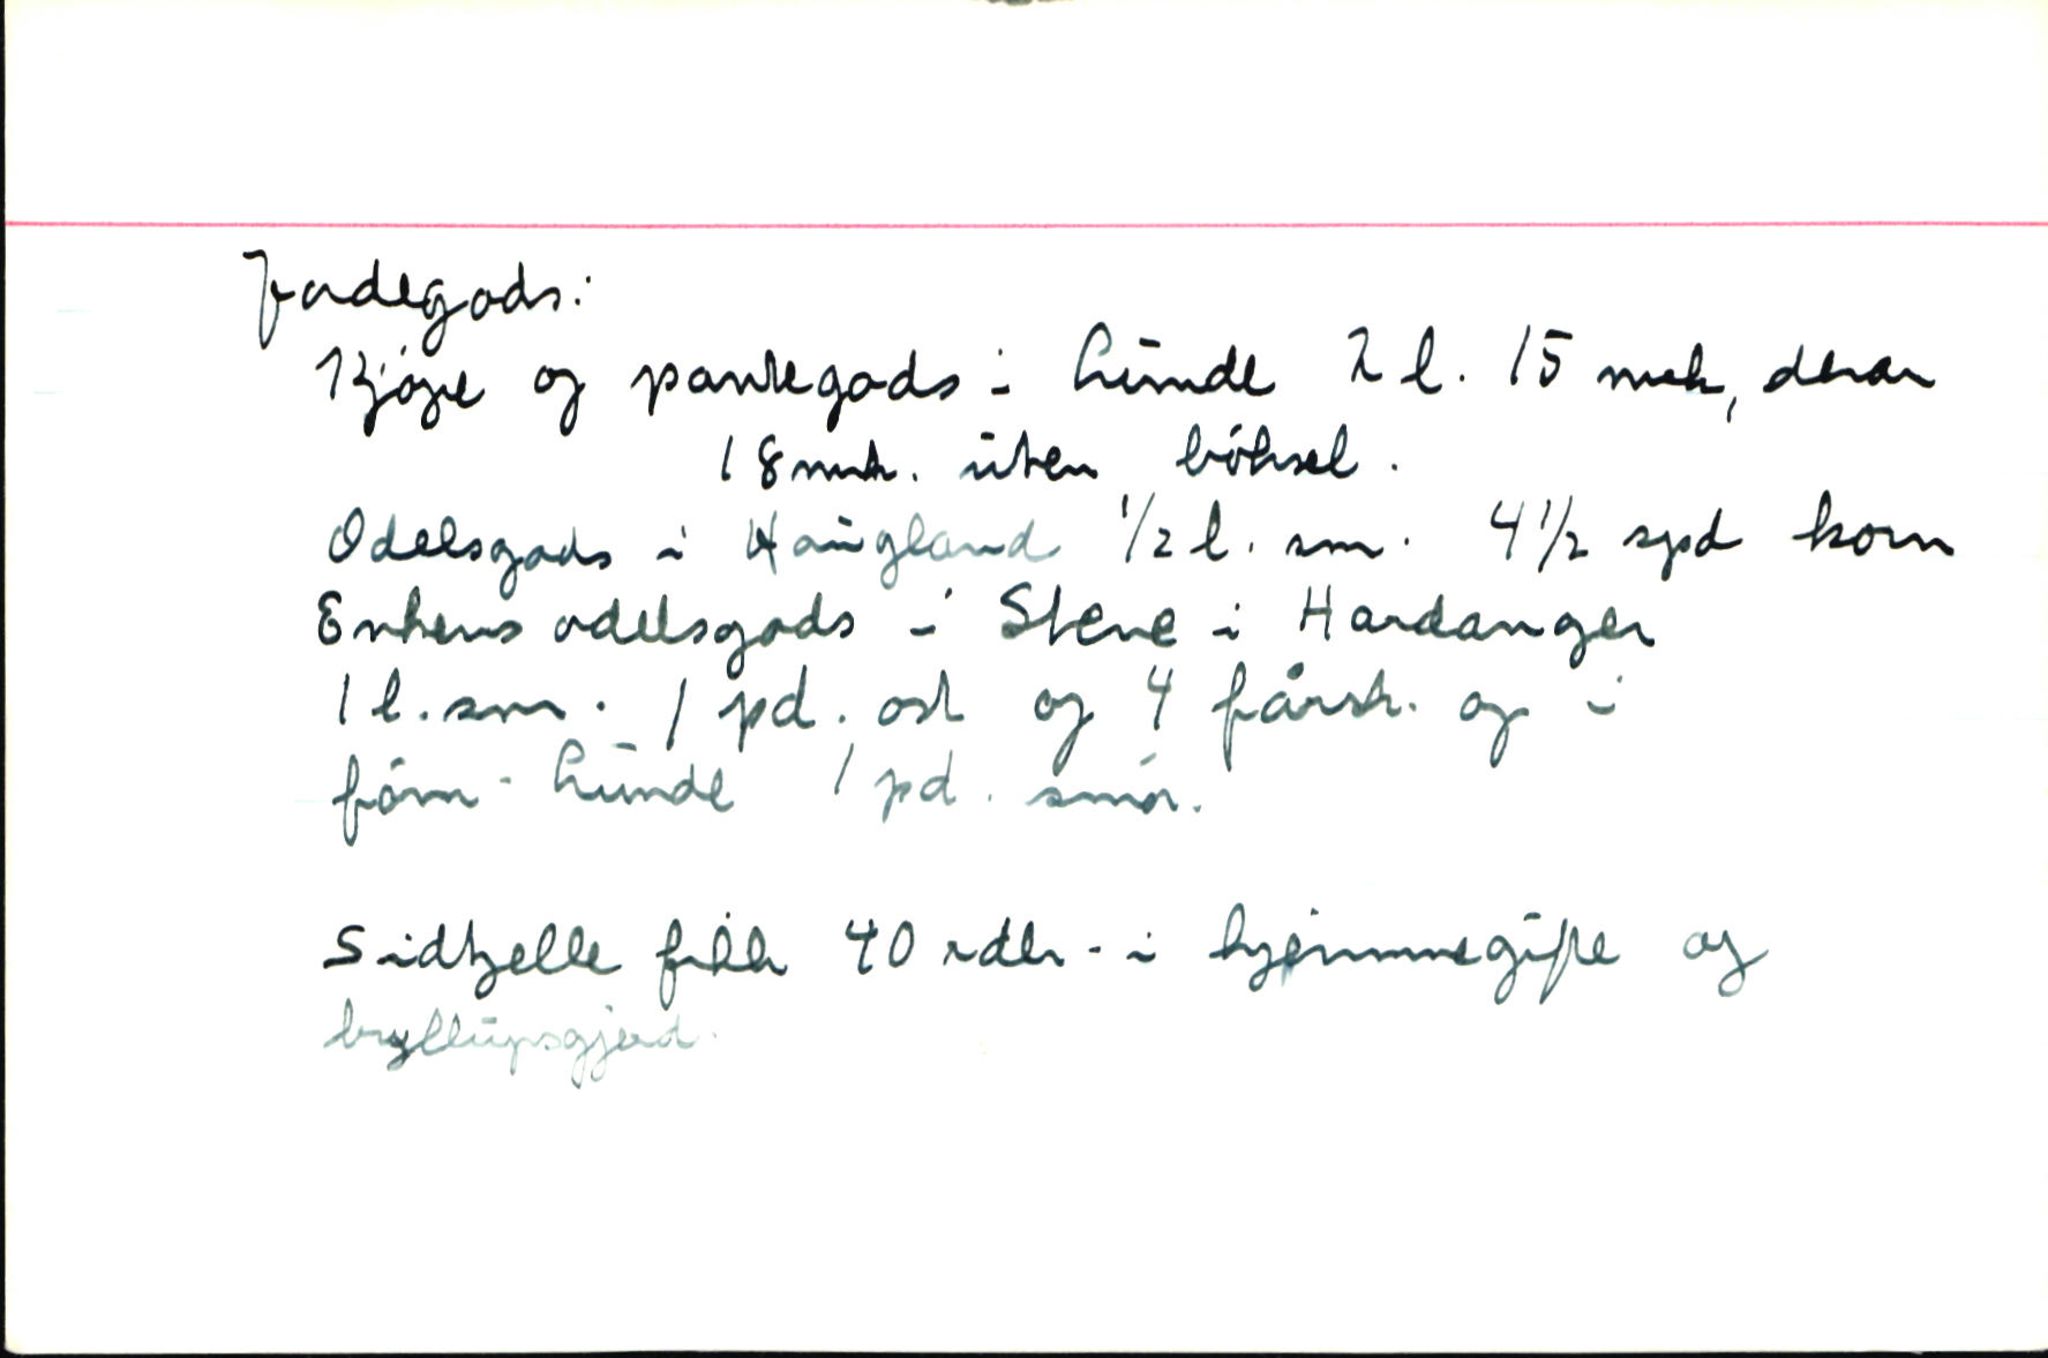 Jordegods:
Kjøpe og pantegods i Lunde 2 l. 15 mrk, derav
18 mrk. uten böksel.
Odelsgods i Haugland 1/2 l. sm. 4 1/2 spd korn
Enkens odelsgods i Stene i Hardanger
1 l. sm. 1 pd. ost og 4 fårsk. og i
förn. Lunde 1 pd. smör.
Sidtzelle fikk 40 rdlr. i hjemmegifte og
bryllupsgjerd.